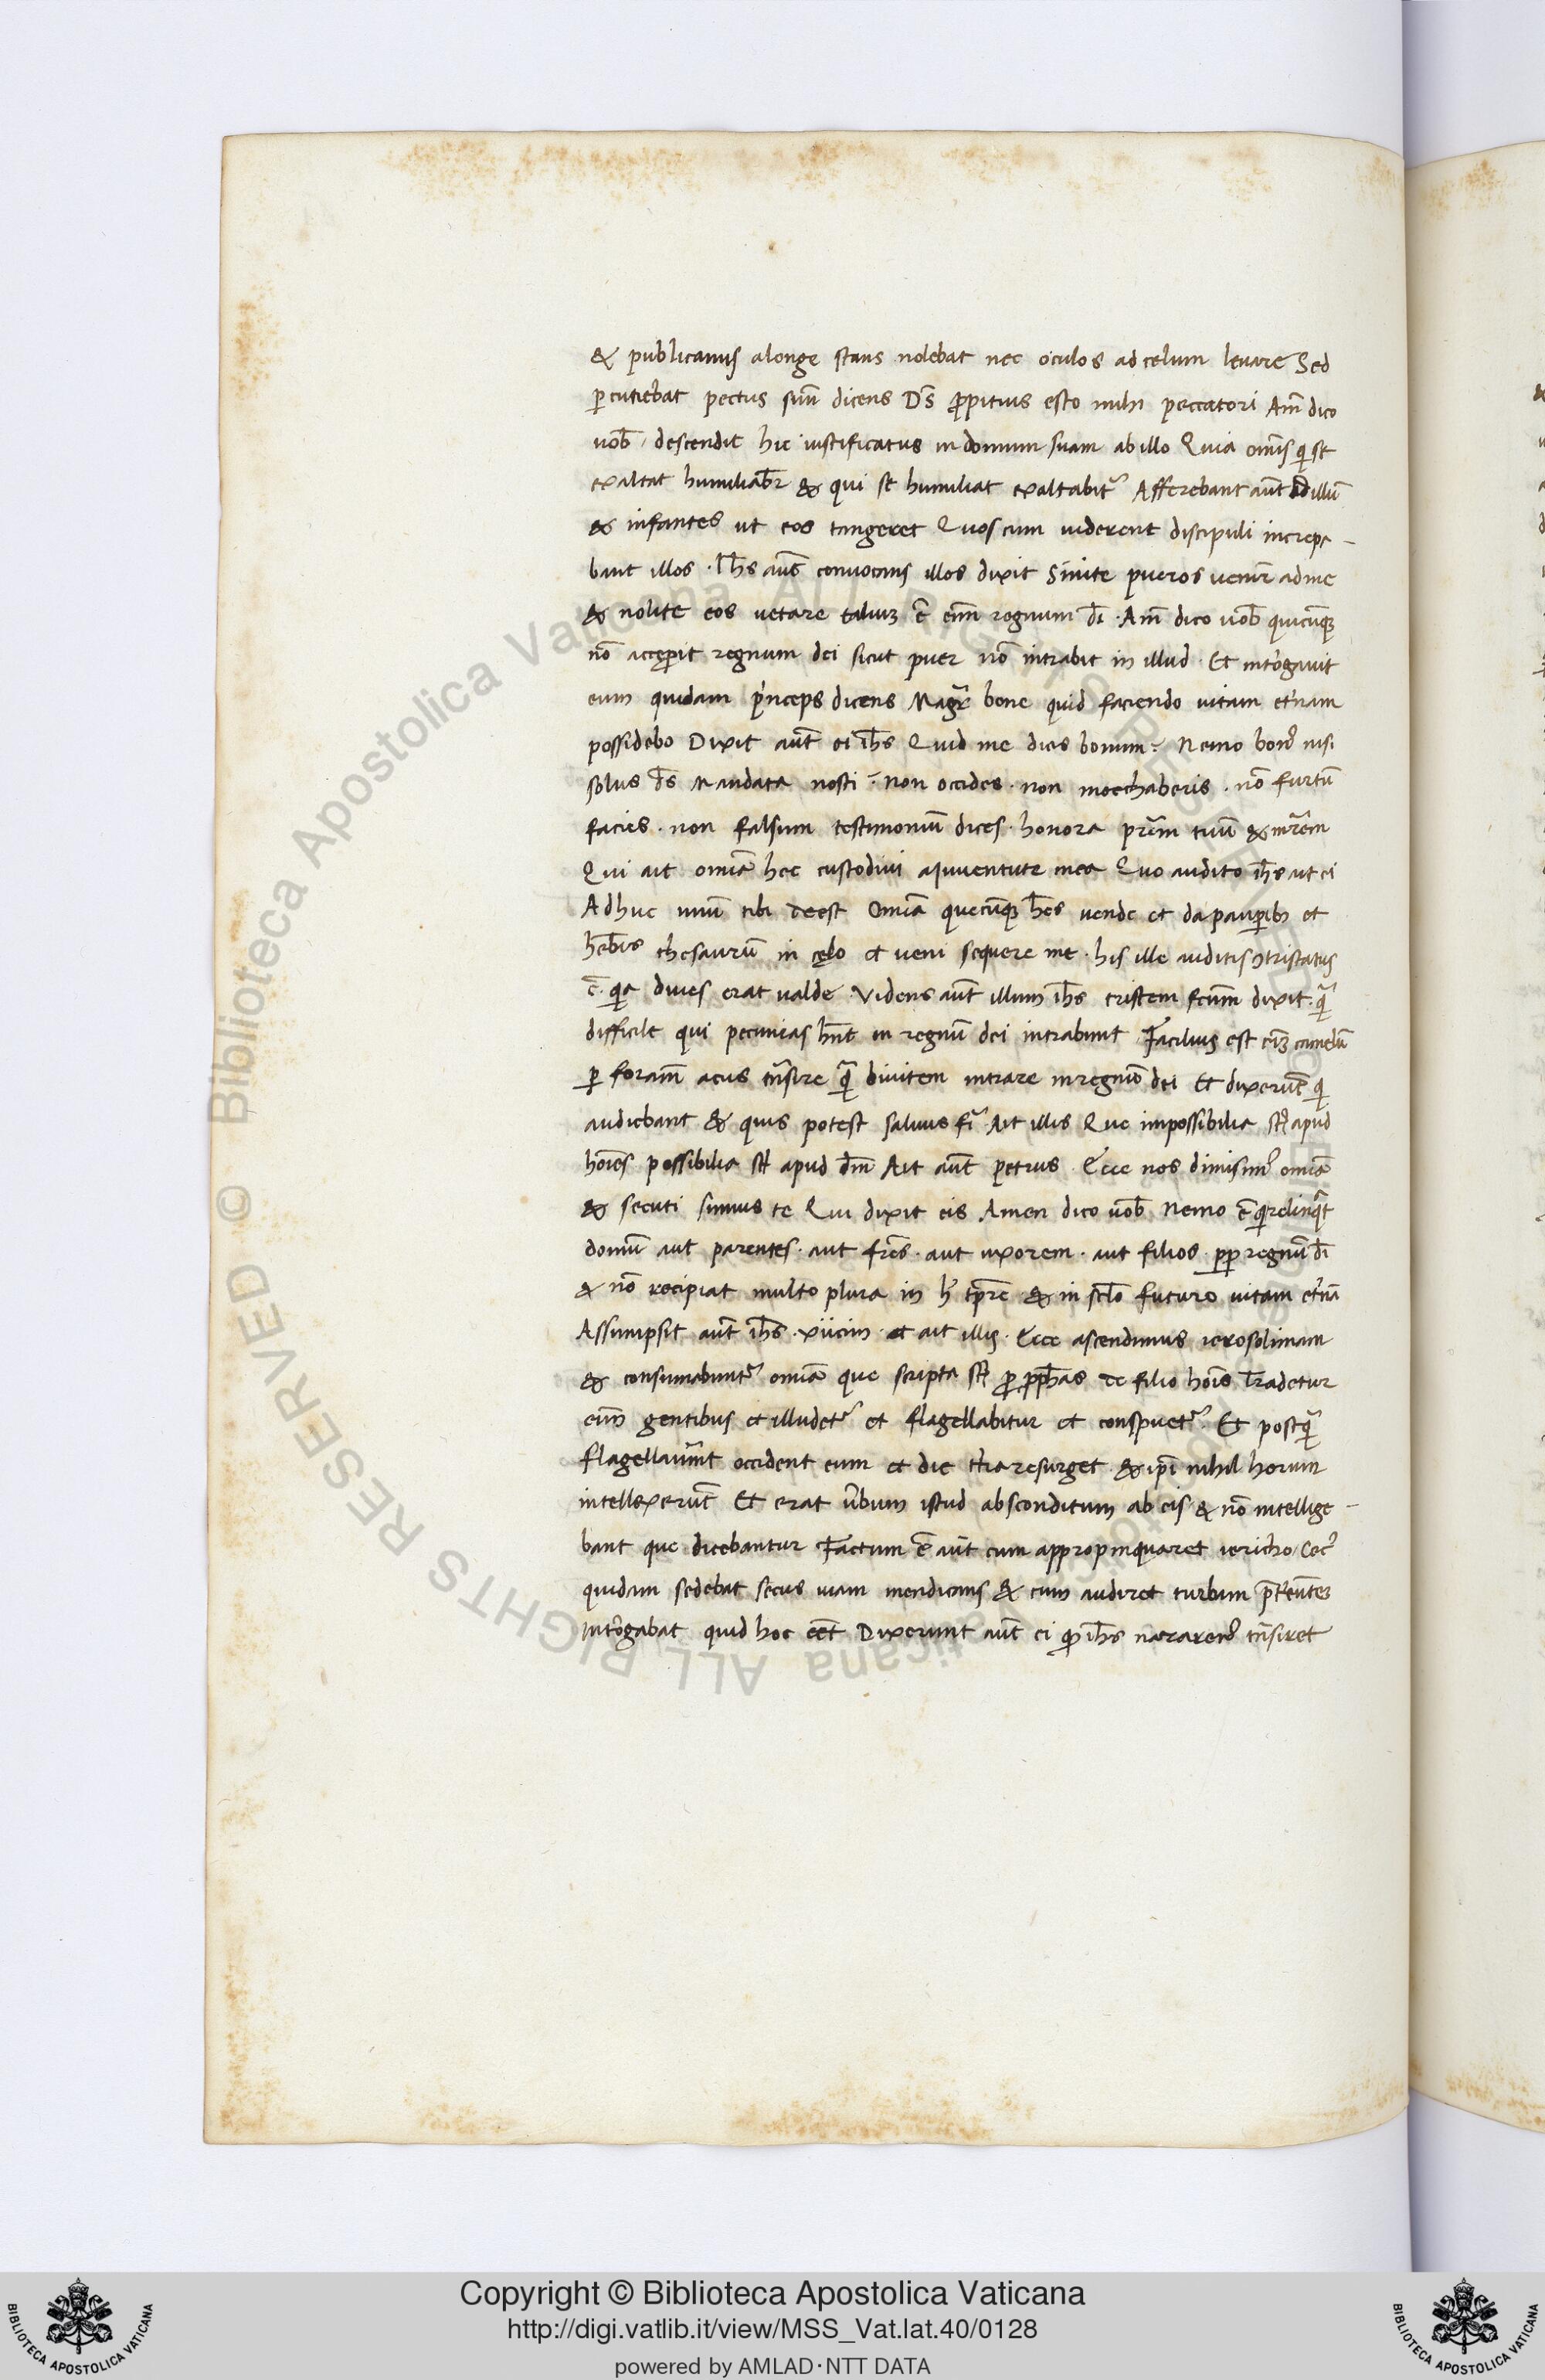 & publicanus alonge stans nolebat nec oculos ad celum leuare Sed
ꝑcutiebat pectus suũ dicens Ds̄ ꝓpitius esto mihi peccatori Am̄ dico
uob̄ / descendit hic iustificatus in domum suam ab illo Quia om̄is qͥ se
exaltat humiliabr̄ & qui se humiliat exaltabit᷑ Afferebant aut̄ ad illũ
& infantes ut eos tangeret Quos cum uiderent discipuli increpa-
bant illos · Ih̄s aut̄ conuocans illos dixit Sinite pueros uenir̄ ad me
& nolite eos uetare talium ē eni̅m regnum dī · Am̄ dico uob̄ quicũqꝫ
nō acceꝑit regnum dei sicut puer nō intrabit in illud · Et int̄rogauit
eum quidam pͥnceps dicens Magr̄ bone quid faciendo uitam et̄nam
possidebo Dixit aut̄ ei ih̄s Quid me dicis bonum? Nemo bonꝰ nisi
solus ds̄ Mandata nosti ? Non occides · non moechaberis · nō furtũ
facies · non falsum testimoniũ dices · honora pr̄em tuũ & mr̄em
Qui ait omīa hec custodiui a iuuentute mea Quo audito ih̄s ait ei
Adhuc unũ tibi deest Omīa quecũqꝫ hēs uende et da pauꝑibꝫ et
hēbis thesaurũ in cęlo et ueni sequere me · his ille auditis ꝯtristatus
ē · qͥa diues erat ualde · Videns aut̄ illum ih̄s tristem fcũm dixit · qᷓ
difficile qui pecunias hn̄t in regnũ dei intrabunt · Facilius est eiͫ camelũ
ꝑ foram̄ acus tn̄sire qᷓ diuitem intrare in regnũ dei Et dixerũt qͥ
audiebant & quis potest saluus fi᷑ Ait illis Que impossibilia st̄ apud
hoīes possibilia st̄ apud dm̄ Ait aut̄ petrus · Ecce nos dimisimꝰ omīa
& secuti sumus te Qui dixit eis Amen dico uob̄ Nemo ē qͥ relinqͥt
domũ aut parentes · aut fr̄es · aut uxorem · aut filios · ꝓꝑ regnũ dī
& nō recipiat multo plura in hͦ tꝑre & in scl̄o futuro uitam et̄nā
Assumpsit aut̄ ih̄s · xiicim · et ait illis · Ecce ascendimus ierosolimam
& consumabunt᷑ omīa que scripta st̄ ꝑ ꝓph̄as de filio hoīs Tradetur
eni̅m gentibus et illudet᷑ et flagellabitur et conspuet᷑ · Et postqᷓ
flagellauer̄int occident eum et die t̄tia resurget · & ip̄i nihil horum
intellexerũt Et erat u̅bum istud absconditum ab eis & nō intellige-
bant que dicebantur Factum ē aut̄ cum appropinquaret iericho / Cecꝰ
quidam sedebat secus uiam mendicans & cum audiret turbam p̄tereũtem
int̄rogabat quid hoc eēt Dixerunt aut̄ ei qͩ ih̄s nazarenꝰ tn̄siret
Copyright © Biblioteca Apostolica Vaticana
http://digi.vatlib.it/view/MSS_Vat.lat.40/0128
powered by AMLAD·NTT DATA
BIBLIOTECA APOSTOLICA VATICANA
BIBLIOTECA APOSTOLICA VATICANA
© Biblioteca Apostolica Vaticana ALL RIGHTS RESERVED